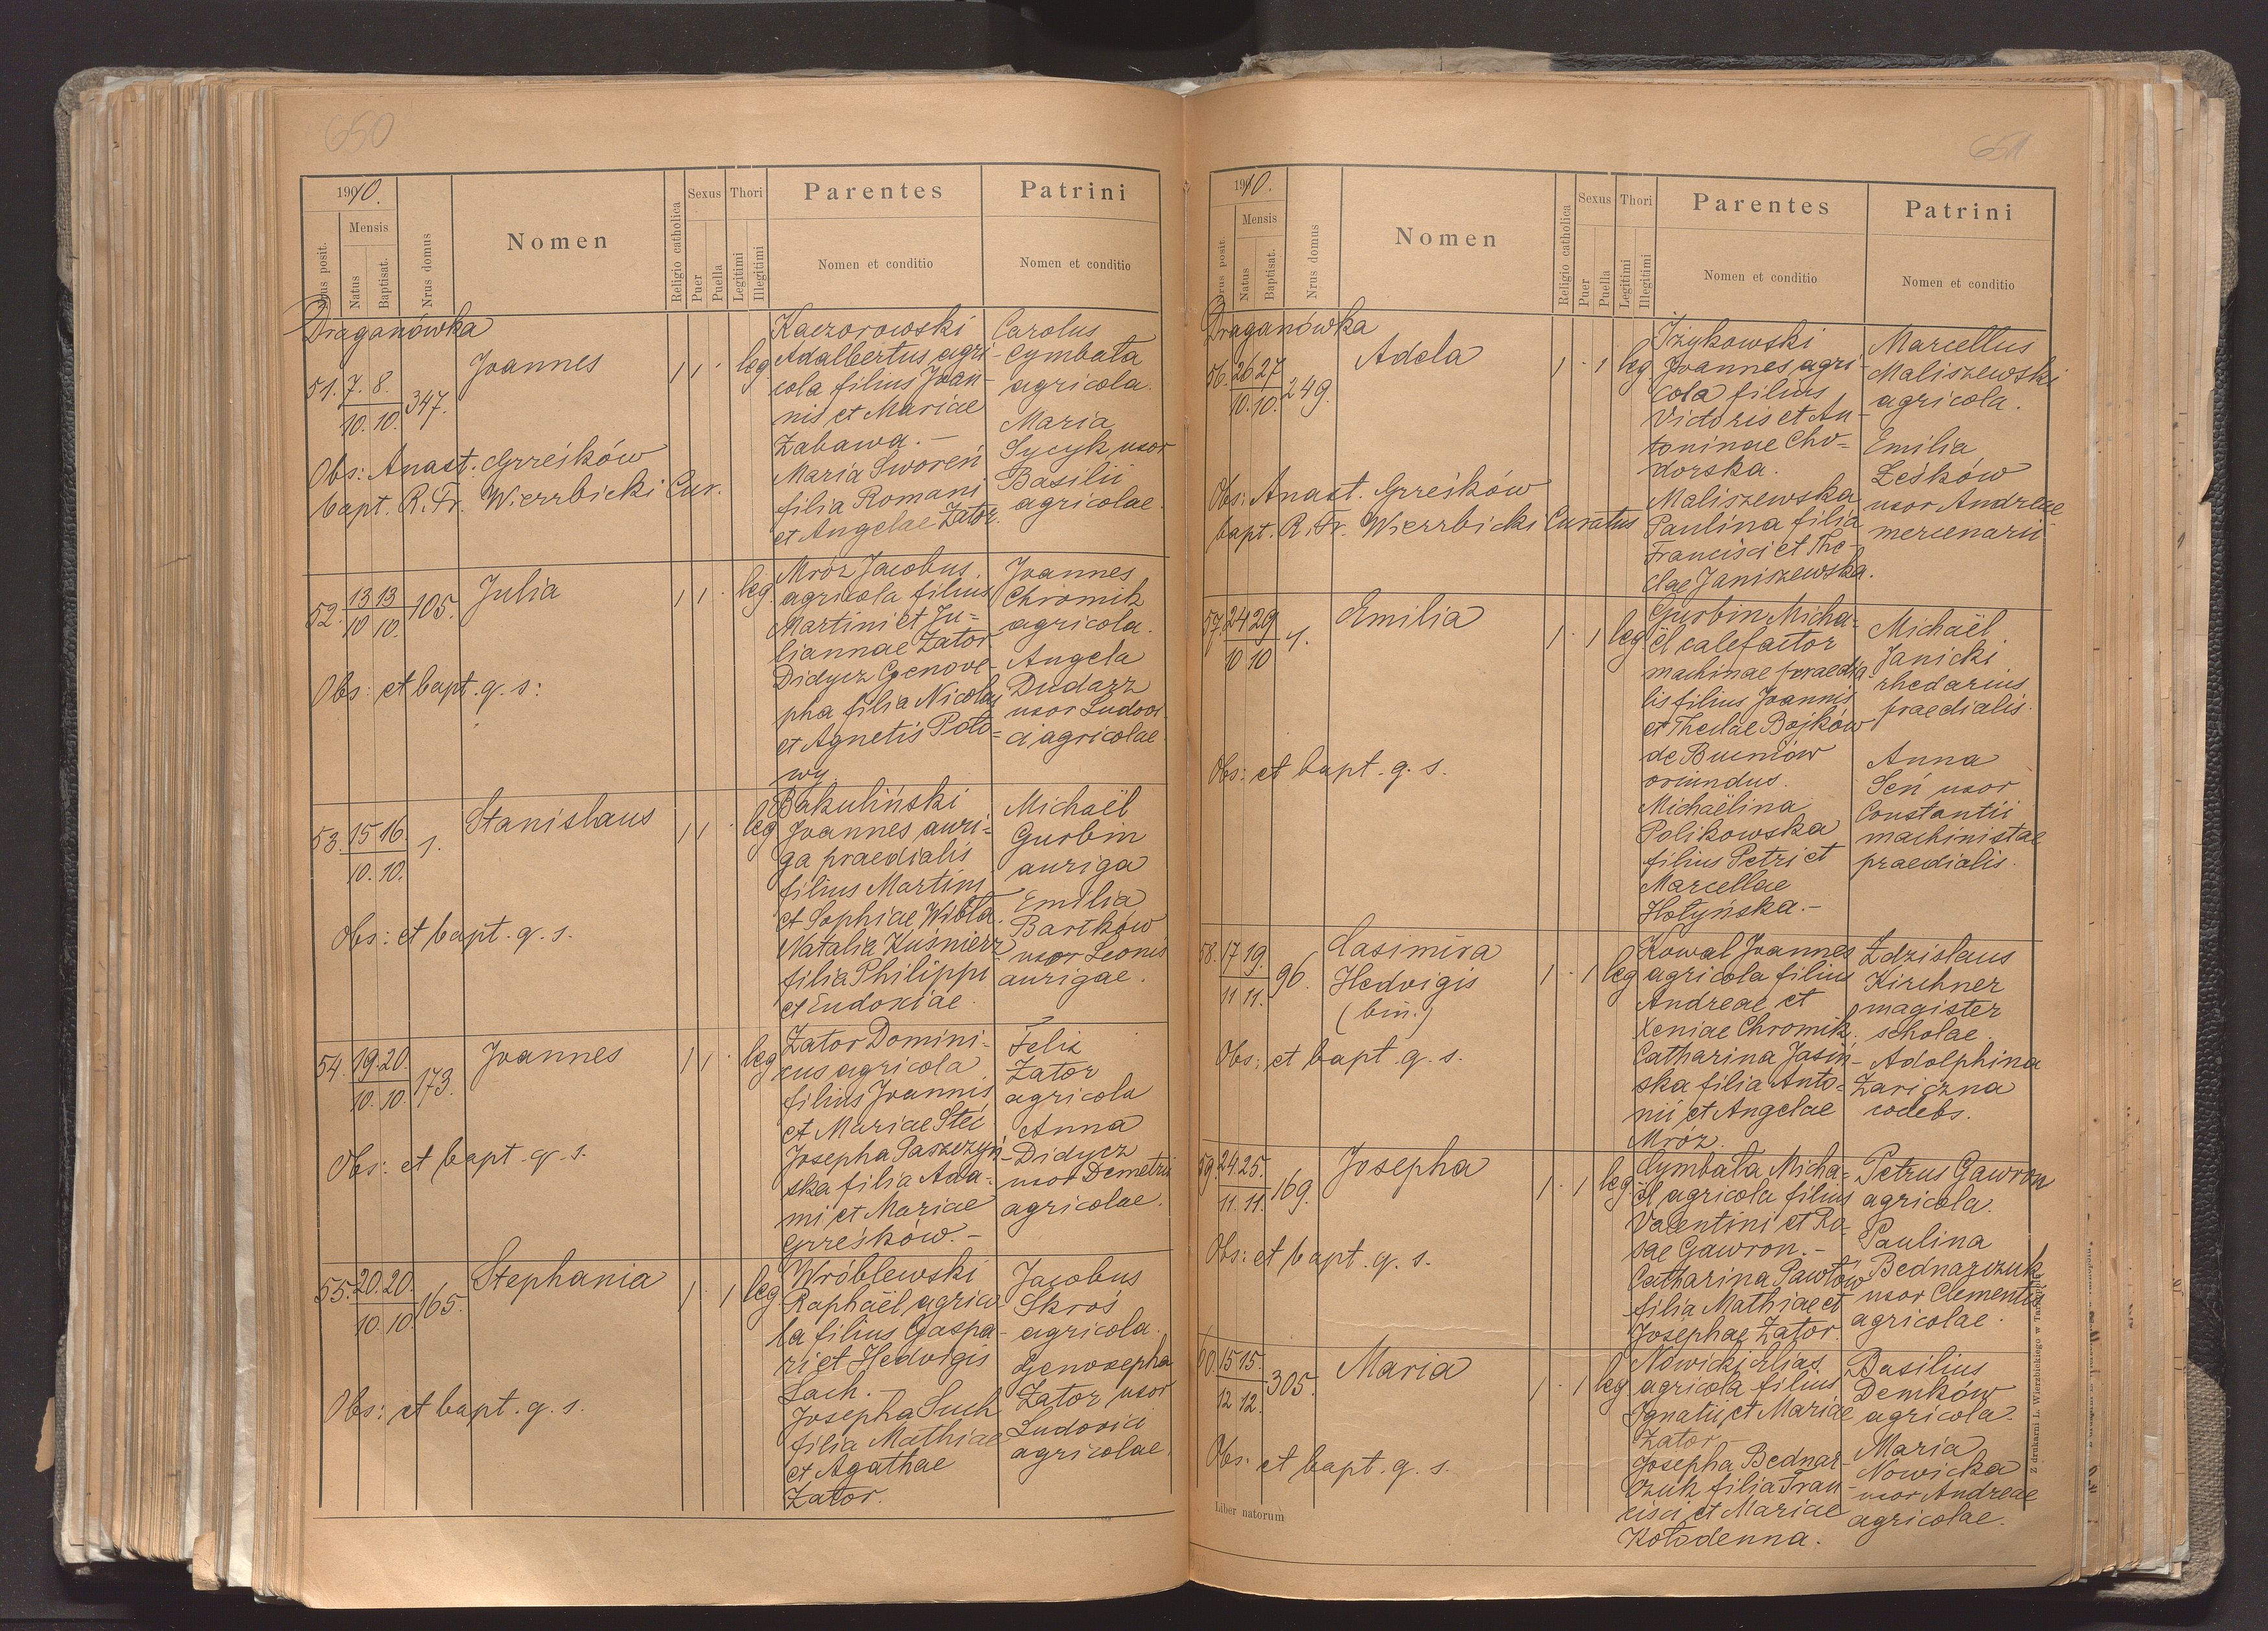 650
1910.
Nrus posit.
Mensis
Natus
Baptisat.
Nrus domus
Nomen
Religio catholica
Sexus
Puer
Puella
Thori
Legitimi
Illegitimi
Parentes
Nomen et conditio
Patrini
Nomen et conditio
Draganówka
51. 7. 8.
10. 10. 347.
Joannes
1 1 · leg
Kaczorowski
Adalbertus agri-
cola filius Joan-
nis et Mariae
Zabawa. -
Maria Sworeń
filia Romani
et Angelae Zator.
Carolus
Cymbała
agricola.
Maria
Sycyk uxor
Basilii
agricolae.
Obs: Anast. Grześków
bapt. R. Fr. Wierzbicki Cur.
52. 13 13
10 10. 105.
Julia
1 1 · leg.
Mróz Jacobus
agricola filius
Martini et Ju-
liannae Zator
Didycz Genove-
pha filia Nicolai
et Agnetis Poto-
wy
Joannes
Chromik
agricola.
Angela
Dudarz
uxor Ludovi-
ci agricolae.
Obs: et bapt. q. s:
53. 15 16.
10. 10. 1.
Stanislaus
1 1 · leg
Bakuliński
Joannes auri-
ga praedialis
filius Martini
et Sophiae Wibła.
Natalia Kuśnierz
filia Philippi
et Eudoxiae.
Michaël
Gurbin
auriga
Emilia
Bartków
uxor Leonis
aurigae.
Obs: et bapt. q. s.
54. 19. 20.
10. 10. 173.
Joannes
1 1 · leg
Zator Domini-
cus agricola
filius Joannis
et Mariae Steć
Josepha Paszczyń-
ska filia Ada-
mi et Mariae
Grześków. -
Felix
Zator
agricola
Anna
Didycz
uxor Demetrii
agricolae.
Obs: et bapt. q. s.
55. 20. 20.
10. 10. 165.
Stephania
1 · 1 leg
Wróblewski
Raphaël agrico-
la filius Gaspa-
ri et Hedvigis
Lach. -
Josepha Such
filia Mathiae
et Agathae
Zator.
Jacobus
Skroś
agricola.
Genovepha
Zator uxor
Ludovici
agricolae.
Obs: et bapt. q. s.
651
1910.
Nrus posit.
Mensis
Natus
Baptisat.
Nrus domus
Nomen
Religio catholica
Sexus
Puer
Puella
Thori
Legitimi
Illegitimi
Parentes
Nomen et conditio
Patrini
Nomen et conditio
Draganówka
56. 26 27
10. 10. 249.
Adela
1 · 1 leg
Iżykowski
Joannes agri-
cola filius
Victoris et An-
toninae Cho-
dorska.
Maliszewska
Paulina filia
Francisci et The-
clae Janiszewska.
Marcellus
Maliszewski
agricola.
Emilia
Leśków
uxor Andreae
mercenarii
Obs: Anast. Grześków
bapt. R. Fr. Wierzbicki Curatus
57. 24 29
10 10 1.
Emilia
1 · 1 leg
Gurbin Micha-
ël calefactor
machinae praedia-
lis filius Joannis
et Theclae Bojków
de Bucniów
oriundus.
Michaëlina
Polikowska
filius Petri et
Marcellae
Hołyńska. -
Michaël
Janicki
rhedarius
praedialis.
Anna
Seń uxor
Constantii
machinistae
praedialis.
Obs: et bapt. q. s.
58. 17 19.
11 11. 96.
Casimira
Hedvigis
(bin.)
1 · 1 leg
Kowal Joannes
agricola filius
Andreae et
Xeniae Chromik.
Catharina Jasiń-
ska filia Anto-
nii et Angelae
Mróz.
Zdzislaus
Kirchner
magister
scholae.
Adolphina
Zariczna
coelebs.
Obs: et bapt. q. s.
59. 24 25.
11. 11. 169.
Josepha
1 · 1 leg
Cymbała Micha-
ël agricola filius
Valentini et Ro-
sae Gawron. -
Catharina Pawłów
filia Mathiae et
Josephae Zator.
Petrus Gawron
agricola.
Paulina
Bednarczuk
uxor Clementis
agricolae.
Obs: et bapt. q. s.
60. 15 15.
12 12. 305.
Maria
1 · 1 leg
Nowicki Elias
agricola filius
Ignatii et Mariae
Zator -
Josepha Bednar-
czuk filia Fran-
cisci et Mariae
Kołodenna.
Basilius
Demków
agricola.
Maria
Nowicka
uxor Andreae
agricolae.
Obs. et bapt. q. s.
Liber natorum
Z drukarni L. Wierzbickiego w Tarnopolu